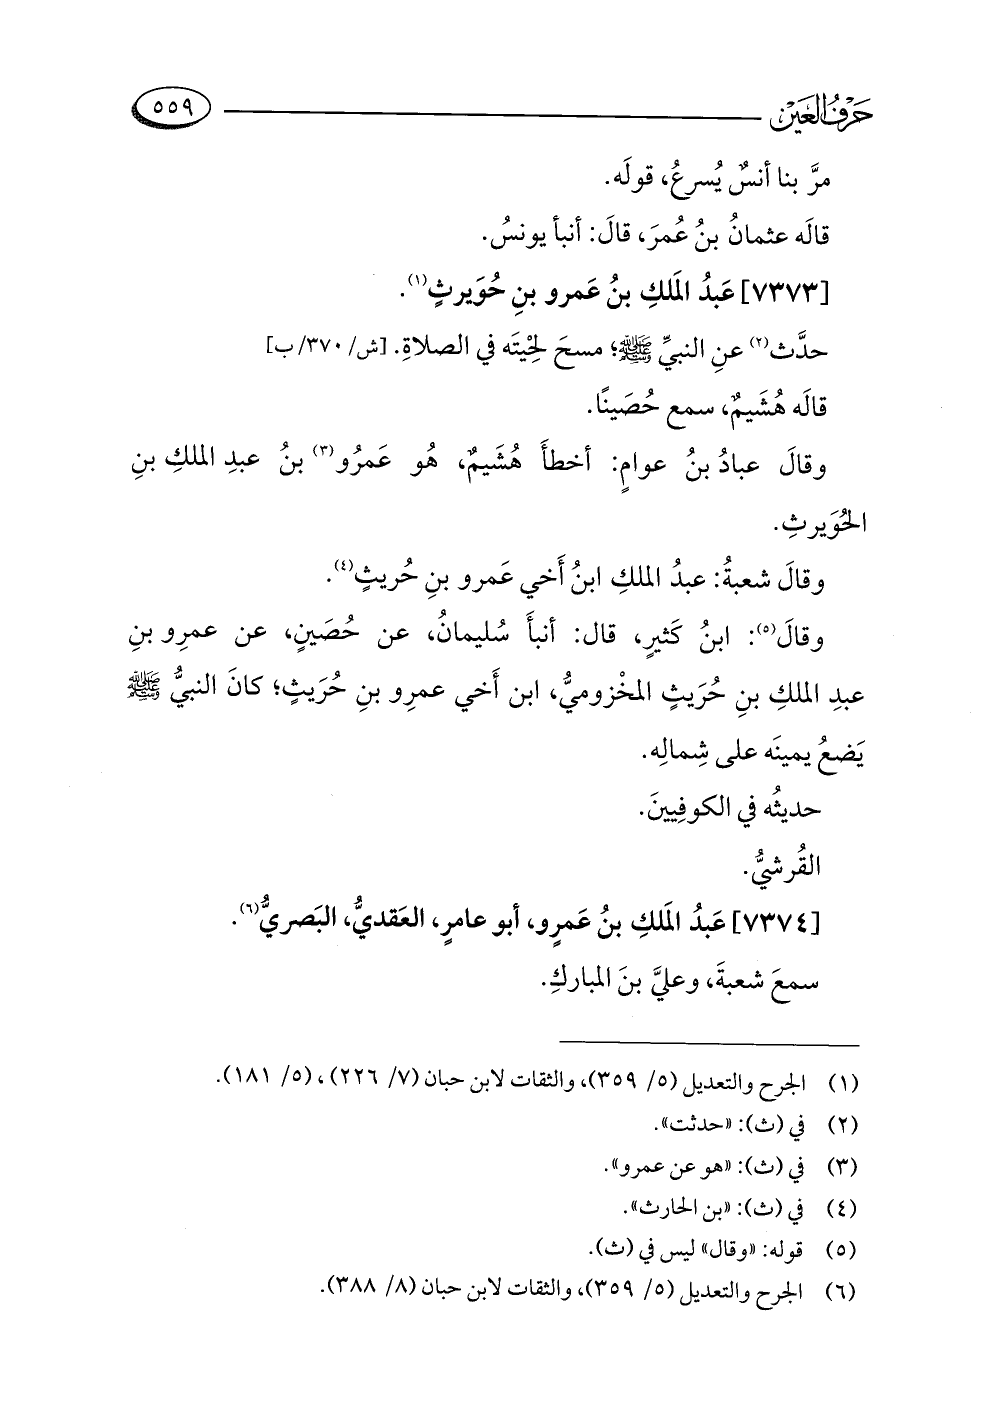 حَرْفُ العَيْن ٥٥٩
مرَّ بنا أنسٌ يُسرعُ، قولَه.
قالَه عثمانُ بنُ عُمرَ، قالَ: أنبأ يونسُ.
[٧٣٧٣] عَبدُ المَلكِ بنُ عَمرو بنِ حُوَيرثٍ(١).
حدَّث(٢) عنِ النبيِّ ﷺ؛ مسحَ لِحْيتَه في الصلاةِ. [ش/ ٣٧٠/ ب]
قالَه هُشَيمٌ، سمع حُصَينًا.
وقالَ عبادُ بنُ عوامٍ: أخطأَ هُشَيمٌ، هُو عَمرُو(٣) بنُ عبدِ الملكِ بنِ
الحُوَيرثِ.
وقالَ شعبةُ: عبدُ الملكِ ابنُ أَخي عَمرو بنِ حُريثٍ(٤).
وقالَ(٥): ابنُ كَثيرٍ، قال: أنبأَ سُليمانُ، عن حُصَينٍ، عن عمرِو بنِ
عبدِ الملكِ بنِ حُرَيثٍ المخْزوميُّ، ابن أَخي عمرِو بنِ حُرَيثٍ؛ كانَ النبيُّ ﷺ
يَضعُ يمينَه على شِمالِه.
حديثُه في الكوفِيينَ.
القُرشيُّ.
[٧٣٧٤] عَبدُ المَلكِ بنُ عَمرٍو، أبو عامرٍ، العَقديُّ، البَصريُّ(٦).
سمعَ شعبةَ، وعليَّ بنَ المباركِ.
(١) الجرح والتعديل (٥/ ٣٥٩)، والثقات لابن حبان (٧/ ٢٢٦)، (٥/ ١٨١).
(٢) في (ث): «حدثت».
(٣) في (ث): «هو عن عمرو».
(٤) في (ث): «بن الحارث».
(٥) قوله: «وقال» ليس في (ث).
(٦) الجرح والتعديل (٥/ ٣٥٩)، والثقات لابن حبان (٨/ ٣٨٨).